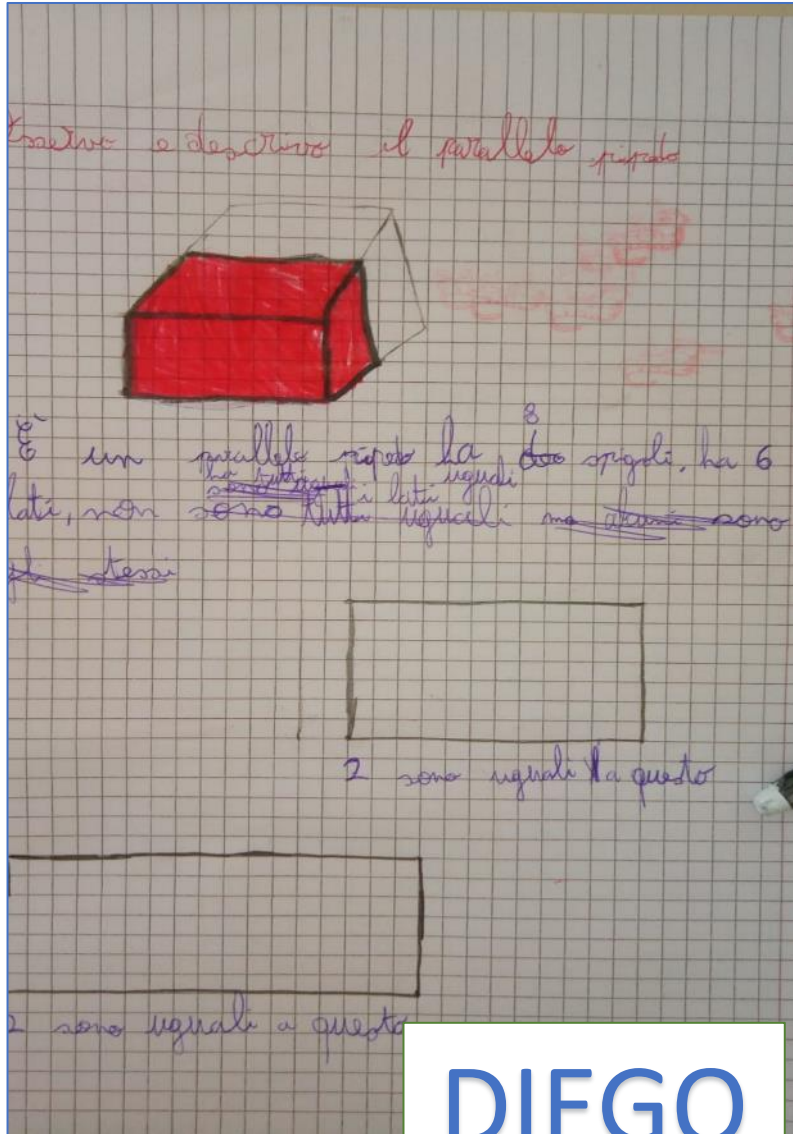 Osservo e descrivo il parallelo pipedo
8
È un parallelo pipedo ha spigoli, ha 6
ha i lati uguali
lati, non sono tutti uguali ma alcuni sono
gli stessi
2 sono uguali a questo
2 sono uguali a questo
DIEGO